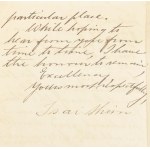 particular place.
While hoping to
hear from you from
time to time, I have
the honour to remain
Excellency
Yours most respectfully
Isac